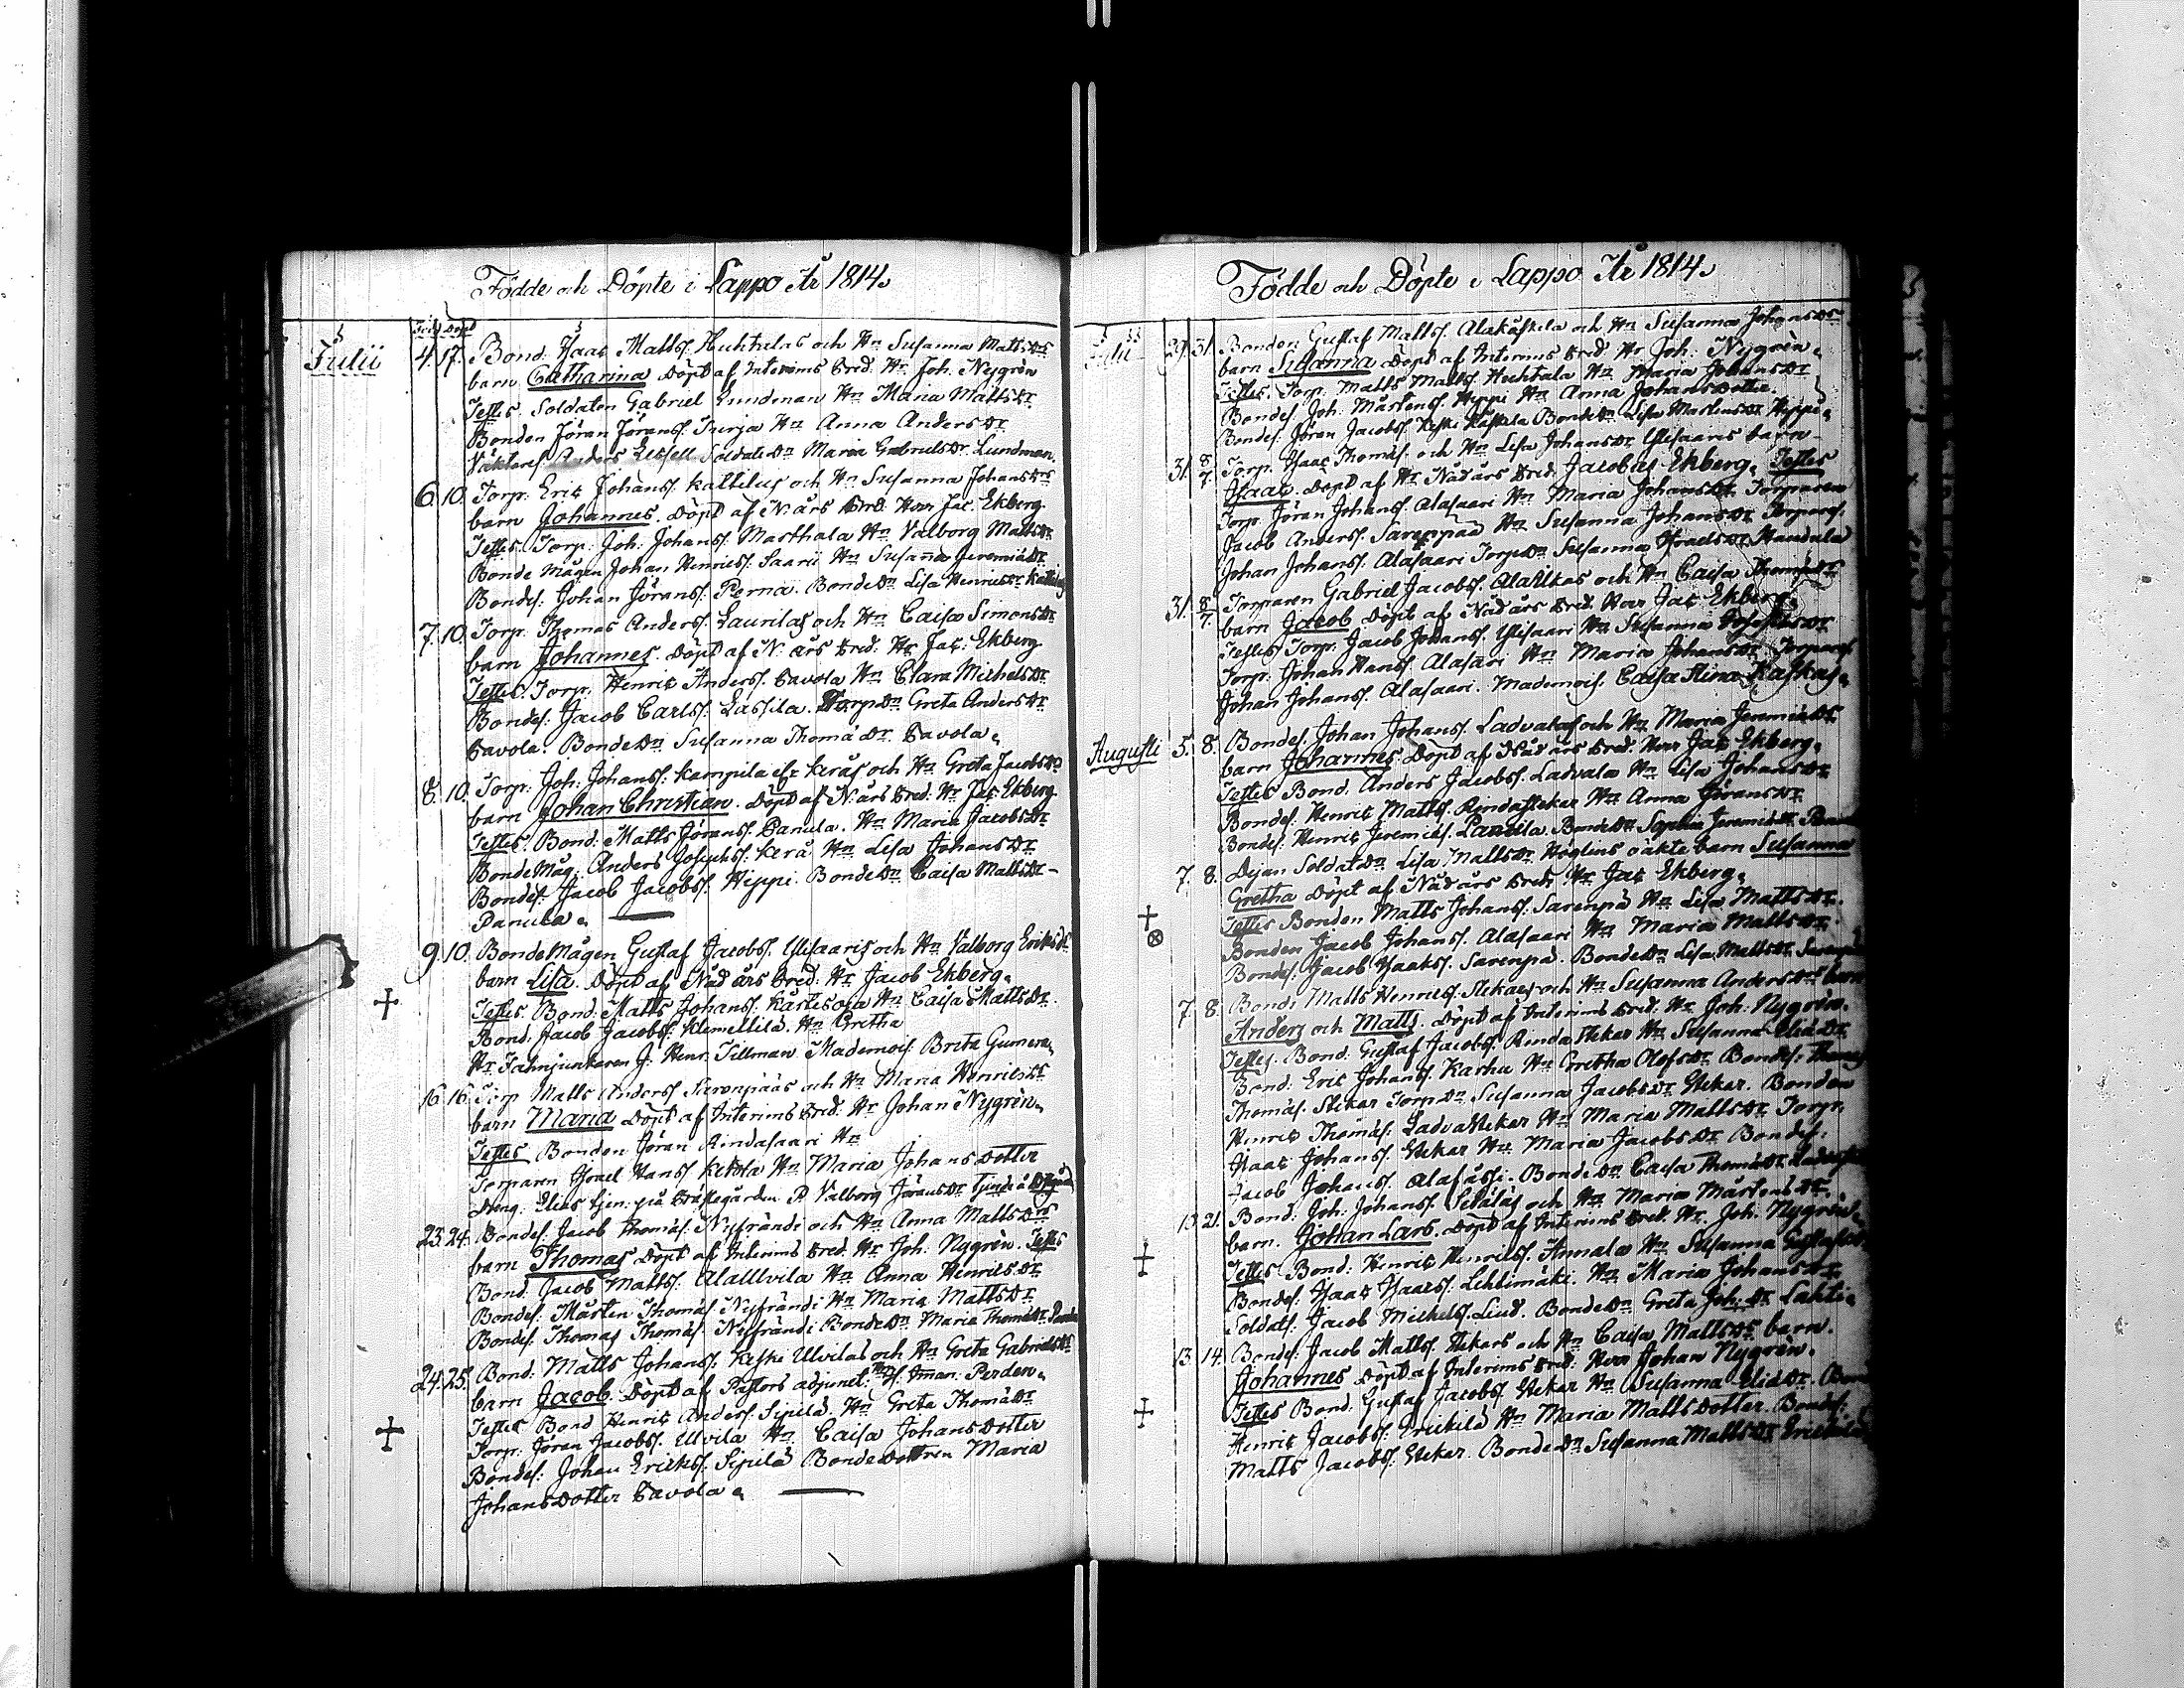 Födde och Döpte i Lappo År 1814.
Född Döpt
Julii 4. 17. Bond. Isac Matts S. Huhtalas och Hu Susanna Matts Drs
barn Catharina Döpt af Interims Pred. Hr Joh. Nygrén
Testes. Soldaten Gabriel Lundman Hu Maria Matts Dr
Bonden Jöran Jörans S. Hu Anna Anders Dr
Anders Soldate Dn Maria Gabriels Dr Lundman.
6. 10. Torp. Eric Johans S. Kattilus och Hu Susanna Johans Drs
barn Johannes. Döpt af N. års Pred. Herr Jac. Ekberg.
Testes. Torp. Joh. Johans S. Marthala Hu Valborg Matts Dr
Bonde Mågen Johan Henrics S. Saarii Hu Susanna Jeremiæ Dr
Bondes. Johan Jörans S. Perna. Bonde Dn Lisa Henrics Dr
7. 10. Torp. Thomas Anders S. Laurilas och Hu Caisa Simons Drs
barn Johannes. Döpt af N. års Pred. Hr Jac. Ekberg
Testes. Torp. Henric Anders S. Pavola Hu Clara Michels Dr
Bondes. Jacob Carls S. Lassila. Torp Dn Greta Anders Dr
Pavola. Bonde Dn Susanna Thomæ Dr. Pavola.
8. 10. Torp. Joh. Johans S. Kampila och Hu Greta Jacobs Drs
barn Johan Christian. Döpt af N. års Pred. Hr Jac. Ekberg
Testes. Bond. Matts Jörans S. Panula. Hu Maria Jacobs Dr
Bonde Måg. Anders Josephs S. Kerå Hu Lisa Johans Dr
Bondes. Jacob Jacobs S. Hippi. Bonde Dn Caisa Matts Dr
Panula.
9. 10. Bonde Mågen Gustaf Jacobs S. Ylisaaris och Hu Valborg Eriks Dr
barn Lisa. Döpt af Nåd års Pred. Hr Jacob Ekberg.
Testes. Bond. Matts Johans S. Hu Caisa Matts Dr.
Bond. Jacob Jacobs S. Klemettilä. Hu Gretha
Hr Fahnjunkaren J. Henr. Tillman. Mademois. Brita
16. 16. Torp. Matts Anders S. Sarenpääs och Hu Maria Henrics Dr
barn Maria Döpt af Interims Pred. Hr Johan Nygrén.
Testes Bonden Jöran Rindasaari Hu
Torparen Israel Hans S. Ketola Hu Maria Johans Dotter
Dräng. Elias tjen. på Prästegården. P. Valborg Jörans Dr
23. 24. Bondes. Jacob Thomæ S. Nyfrändi och Hu Anna Matts Drs
barn Thomas Döpt af Interims Pred. Hr Joh. Nygrén. Testes
Bond. Jacob Matts S. Alallvila Hu Anna Henrics Dr
Bondes. Mårten Thomæ S. Nyfrändi Hu Maria Matts Dr
Bondes. Thomas Thomæ S. Nyfrändi Bonde Dn Maria Thomæ Dr
24. 25. Bond. Matts Johans S. Keski Ulvilas och Hu Greta Gabriels Drs
barn Jacob. Döpt af Pastors adjunct. Perden.
Testes Bond. Henric Anders S. Sipilä. Hu Greta Thomæ Dr
Torp. Jöran Jacobs S. Ulvila Hu Caisa Johans Dotter
Bondes. Johan Ericks S. Sipilä Bonde Dottren Maria
Johans Dotter Pavola.
Födde och Döpte i Lappo År 1814.
Julii 29. 31. Bonden Gustaf Matts S. Alakäskela och Hu Susanna Johans Drs
barn Susanna Döpt af Interims Pred. Hr Joh. Nygrén.
Testes. Torp. Matts Matts S. Huhtala Hu Maria Johans Dr
Bondes. Joh. Mårtens S. Hippi Hu Anna Johans Dotter.
Bondes. Jöran Jacobs S. Keski Käskela Bonde Dn Lisa Martens Dr Hippi.
31. 8/7. Torp. Isaac Thomæ S. och Hu Lisa Johans Dr Ylisaaris barn
Isaac. Döpt af Hr Nåd års Pred. Jacobus Ekberg. Testes
Torp. Jöran Johans S. Alasaari Hu Maria Johans Dr. Torparen
Jacob Anders S. Sarenpää Hu Susanna Johans Dr Torpares.
Johan Johans S. Alasaari Torp Dn Susanna Israels Dr Haudala
31. 8/7. Torparen Gabriel Jacobs S. och Hu Caisa Thomæ Drs
barn Jacob Döpt af Nåd års Pred. Herr Jac. Ekberg.
Testes Torp. Jacob Johans S. Ylisaari Hu Susanna
Torp. Johan Hans S. Alasari Hu Maria Johans Dr Torpares
Johan Johans S. Alasaari. Mademois. Caisa Stina
Augusti 5. 8. Bondes. Johan Johans S. Ladvalas och Hu Maria Jeremiæ Drs
barn Johannes Döpt af Nåd års Pred. Herr Jac. Ekberg.
Testes Bond. Anders Jacobs S. Ladvala Hu Lisa Johans Dr
Bondes. Henric Matts S. Hu Anna Jörans Dr
Bondes. Henric Jeremiæ S. Bonde Dn Sophia Jeremiæ Dr
7. 8. Pijan Soldat Dn Lisa Matts Dr Höglins oäkte barn Susanna
Gretha Döpt af Nåd års Pred. Hr Jac Ekberg.
Testes Bonden Matts Johans S. Sarenpä Hu Lisa Matts Dr.
Bonden Jacob Johans S. Alasaari Hu Maria Matts Dr.
Bondes. Jacob Isaaks S. Sarenpä. Bonde Dn Lisa Matts Dr
7. 8. Bond. Matts Henrics S. och Hu Susanna Anders Drs barn
Anders och Matts. Döpt af Interims Pred. Hr Joh. Nygrén.
Testes. Bond. Gustaf Jacobs S. Hu Susanna Eliæ Dr
Bond. Eric Johans S. Karhu Hu Gretha Olofs Dr Bondes. Thomas
Thomæ S. Torp Dn Susanna Jacobs Dr Bonden
Henric Thomæ S. Hu Maria Matts Dr Torp.
Isaac Johans S. Hu Maria Jacobs Dr Bondes.
Jacob Johans S. Bonde Dn Caisa Thomæ Dr
13. 21. Bond. Joh. Johans S. och Hu Maria Mårtens Drs
barn. Johan Lars. Döpt af Interims Pred. Hr Joh. Nygrén.
Testes Bond. Henric Henrics S. Annala Hu Susanna
Bondes. Isaac Isaacs S. Lehtimäki. Hu Maria Johans Dr
Soldats. Jacob Michels S. Lind. Bonde Dn Greta Joh. Dr Lahti.
13. 14. Bondes. Jacob Matts S. och Hu Caisa Matts Drs barn.
Johannes Döpt af Interims Pred. Herr Johan Nygrén.
Testes Bond. Gustaf Jacobs S. Hu Susanna Eliæ Dr.
Henric Jacobs S. Erickilä Hu Maria Matts Dotter. Bondes.
Matts Jacobs S. Bonde Dn Susanna Matts Dr Erickilä